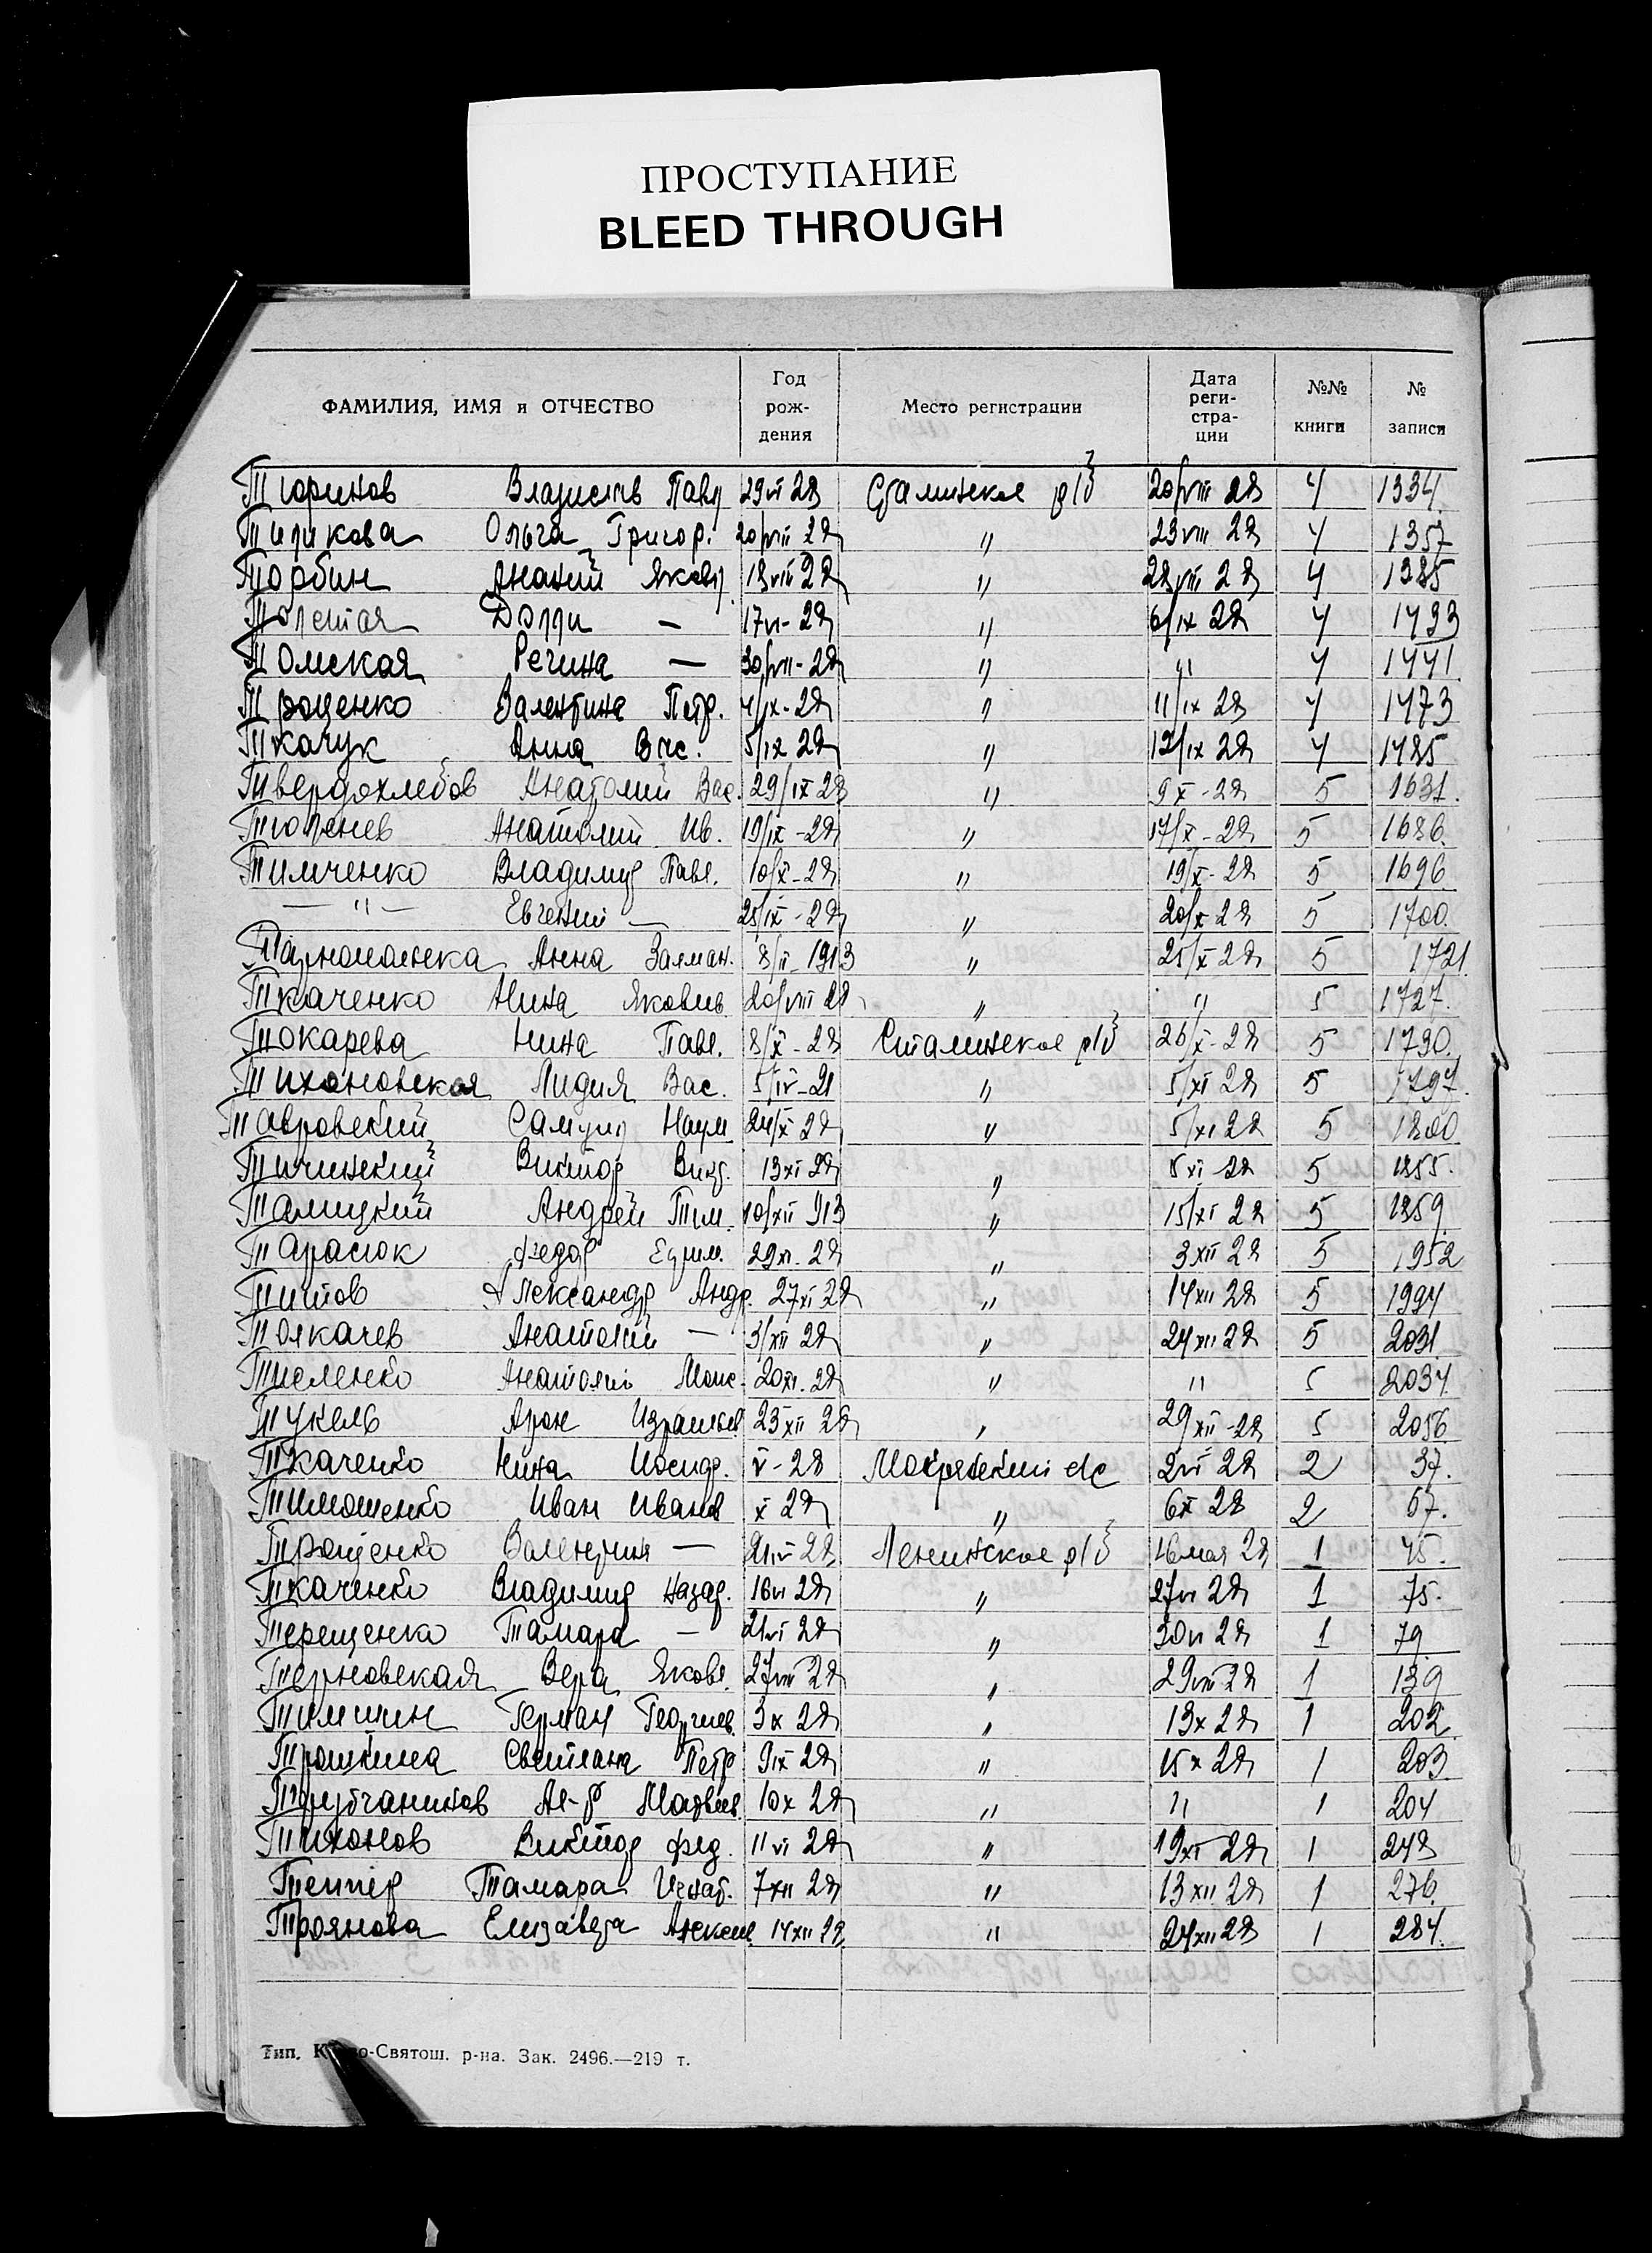 ПРОСТУПАНИЕ
BLEED THROUGH
ФАМИЛИЯ, ИМЯ и ОТЧЕСТВО Год рож- дения Место регистрации Дата реги- стра- ции №№ книги № записи
Тюринов Владислав Павл 29 VI 28 Сталинское р/б 20/VIII 28 4 1334.
Тиликова Ольга Григор. 20/VIII 28 " 23 VIII 28 4 1357
Торбин Ананий Яковл 18 VIII 28 " 28 VIII 28 4 1385
Толстая Долли — 17 VI - 28 " 6/IX 28 4 1433
Томская Регина — 30/VII - 28 " " 4 1441.
Троценко Валентина Петр. 4/IX - 28 " 11/IX 28 4 1473
Ткачук Анна Вас. 5/IX 28 " 12/IX 28 4 1485
Твердохлебов Анатолий Вас. 29/IX 28 " 9 X - 28 5 1631.
Тюленев Анатолий Ив. 19/IX - 28 " 17/X - 28 5 1686.
Тимченко Владимир Павл. 10/X - 28 " 19/X - 28 5 1696.
— " — Евгений — 25/IX - 28 " 20/X - 28 5 1700.
Анна Залман. 8/II - 1913 " 25/X - 28 5 1721
Ткаченко Нина Яковлев. 20/VIII 28 " " 5 1727.
Токарева Нина Павл. 8/X - 28 Сталинское р/б 26/X - 28 5 1730.
Тихоновская Лидия Вас. 5/IV - 21 " 5/XI 28 5 1797.
Тавровский Самуил Наум 24/X 28 " 5/XI 28 5 1800
Тичинский Виктор Викт. 13 XI 28 " 5 XI - 28 5 1855.
Талицкий Андрей Тим. 10/XII 913 " 15/XI 28 5 1859.
Тарасюк Федор Ефим. 29 XI. 28 " 3 XII 28 5 1952
Титов Александр Андр. 27 XI 28 " 14 XII 28 5 1994
Толкачев Анатолий — 3/XII 28 " 24 XII 28 5 2031
Тисленко Анатолий Моис. 20 XI. 28 " " 5 2034.
Тукель Арон Израилев 23 XII 28 " 29 XII - 28 5 2056
Ткаченко Нина Иосиф. V - 28 Мокрянский с/с 2 VI 28 2 37.
Тимошенко Иван Иванов X 28 " 6 X 28 2 57.
Трощенко Валентин — 21 IV 28 Ленинское р/б 16 мая 28 1 45.
Ткаченко Владимир Назар. 16 VI 28 " 27 VI 28 1 75.
Терещенко Тамара — 21 VI 28 " 30 VI 28 1 79
Терновская Вера Яковл. 27 VIII 28 " 29 VIII 28 1 139
Тимишин Герман Георгиев. 3 X 28 " 13 X 28 1 202
Трошкина Светлана Петр 9 IX 28 " 15 X 28 1 203
Трубчанинов Ал-р Матвеев. 10 X 28 " " 1 204
Тихонов Виктор Фед. 11 VI 28 " 19 XI 28 1 248
Теппер Тамара Игнат. 7 XII 28 " 13 XII 28 1 276.
Троянова Елизавета Алексе. 14 XII 28 " 24 XII 28 1 284.
Тип. К -Святош. р-на. Зак. 2496.—219 т.